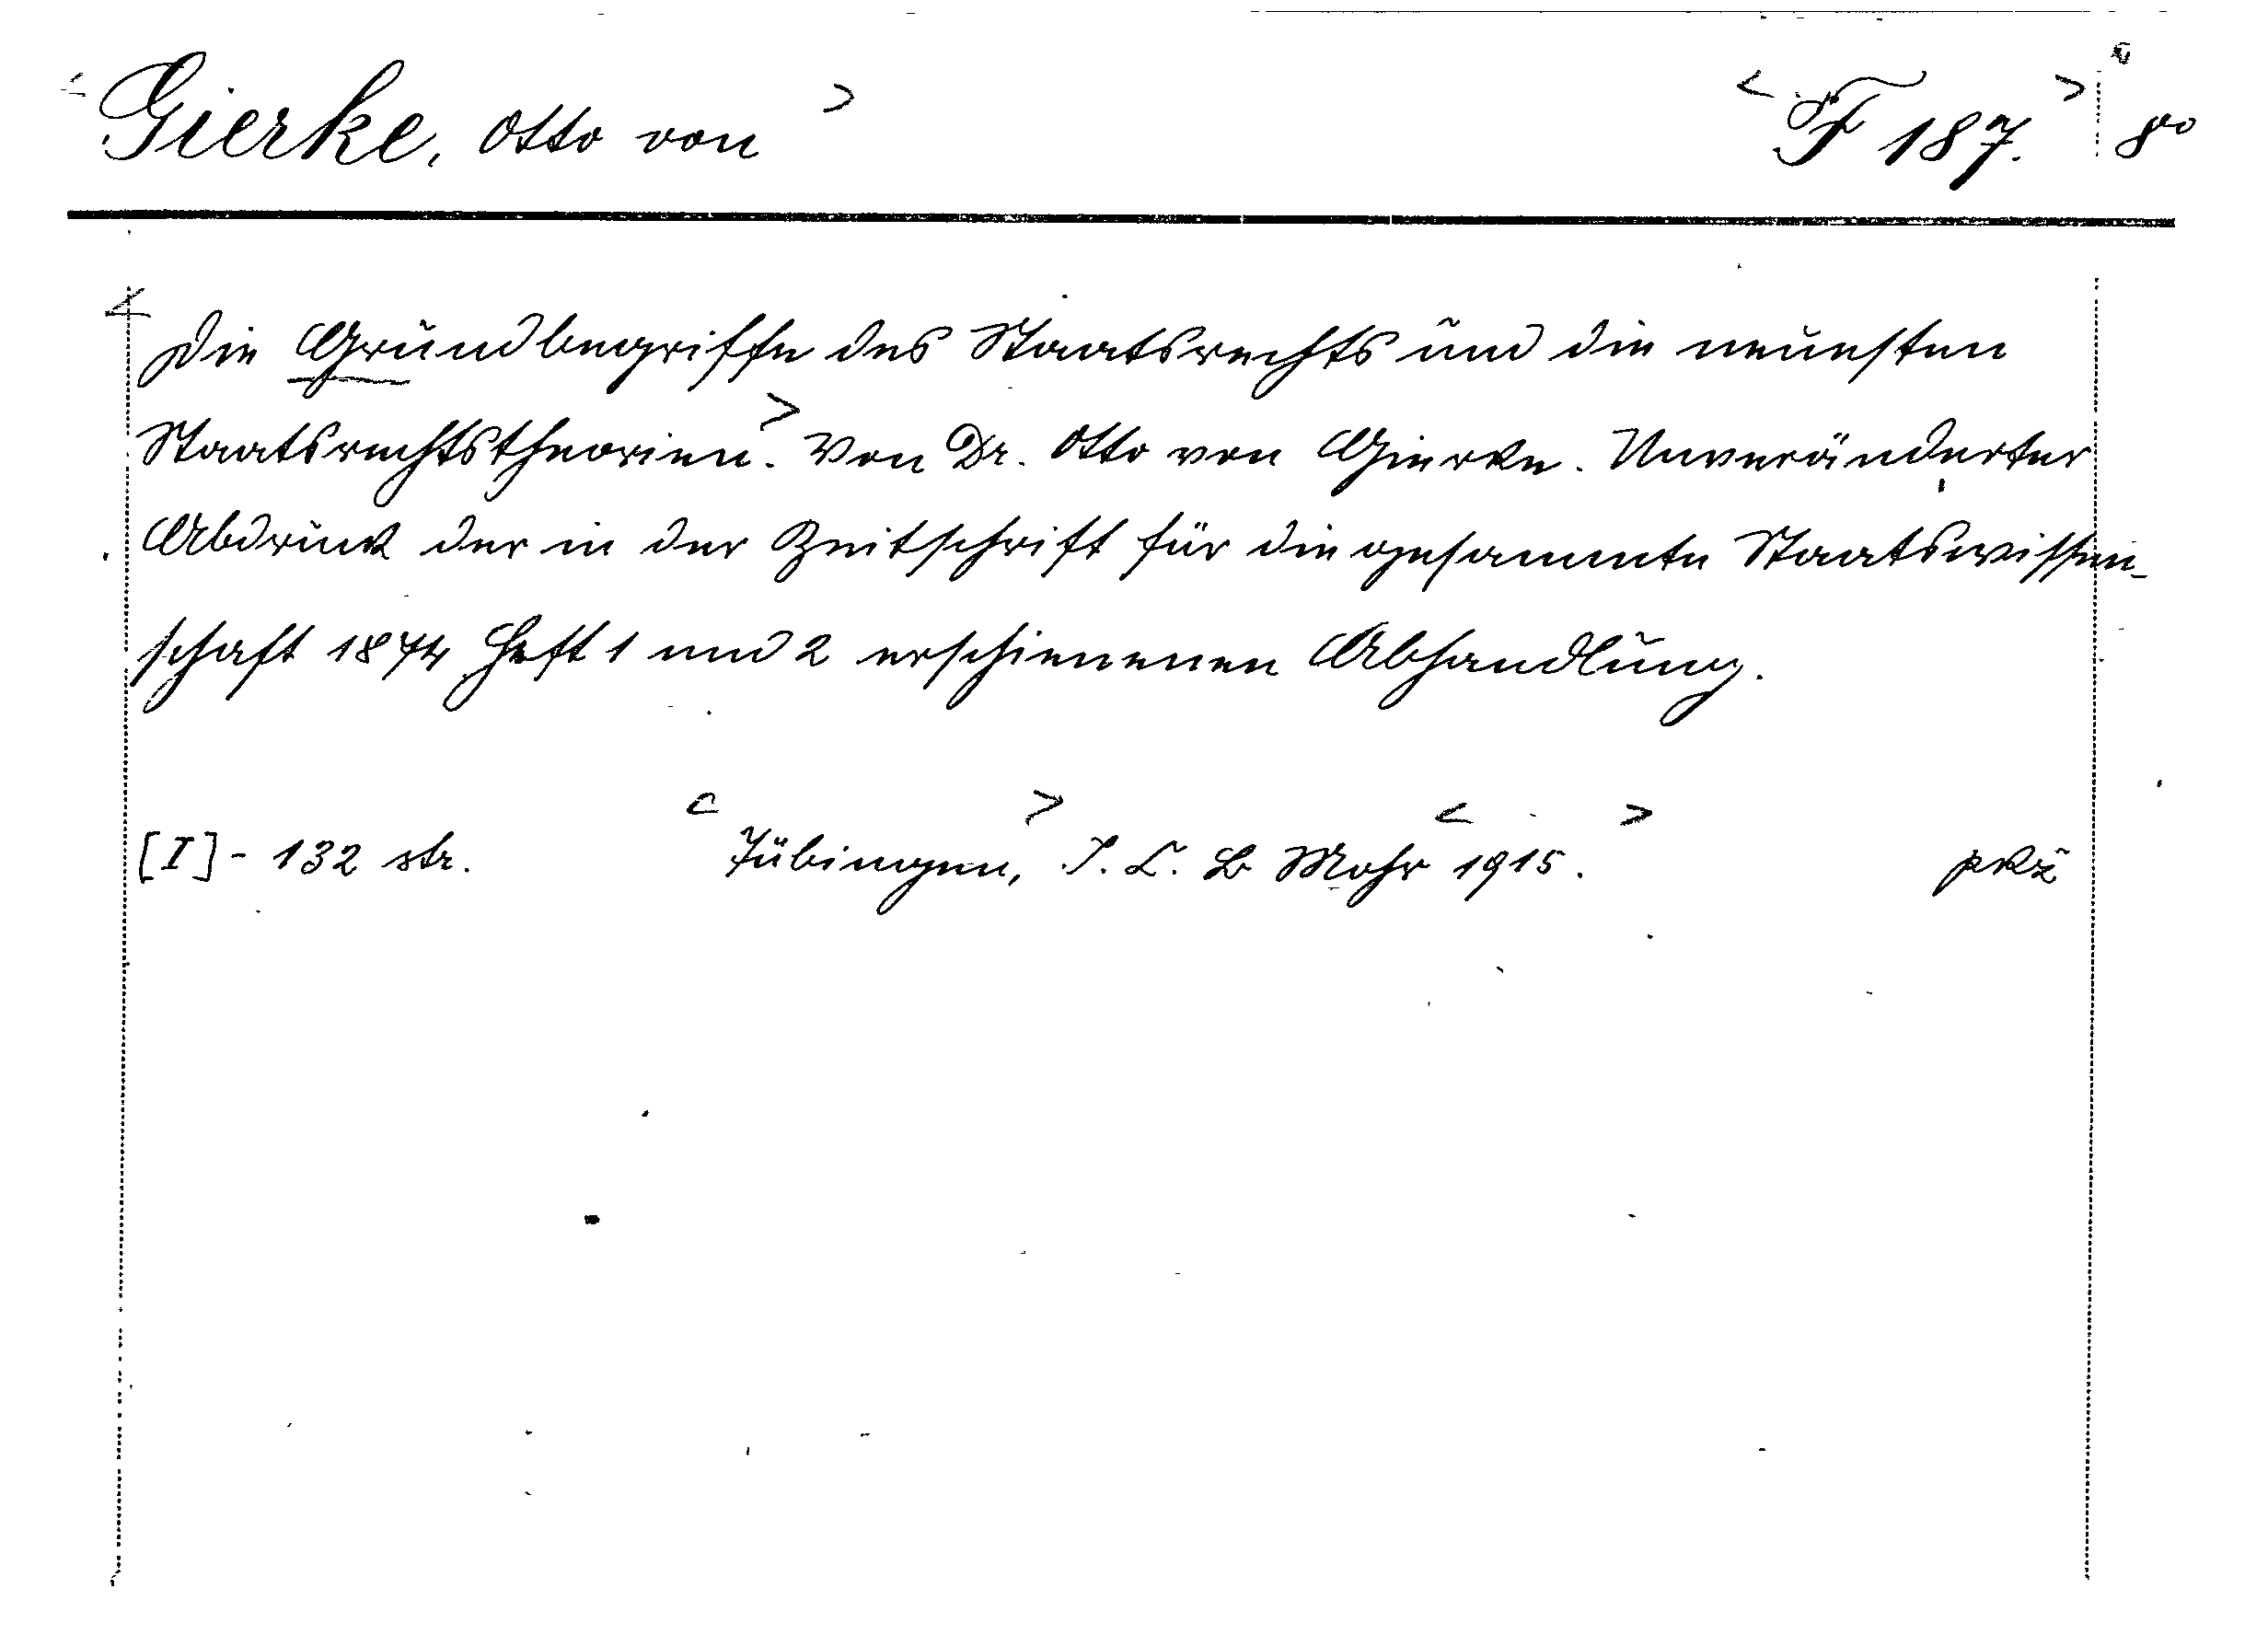 Gierke, Otto von F 187. 8°
Die Grundbegriffe des Staatsrechts und die neuesten
Staatsrechtstheorien. Von Dr. Otto von Gierke. Unveränderter
Abdruck der in der Zeitschrift für die gesammte Staatswissen-
schaft 1874 Heft 1 und 2 erschienenen Abhandlung.
[I] - 132 str. Tübingen, J. C. B Mohr 1915.